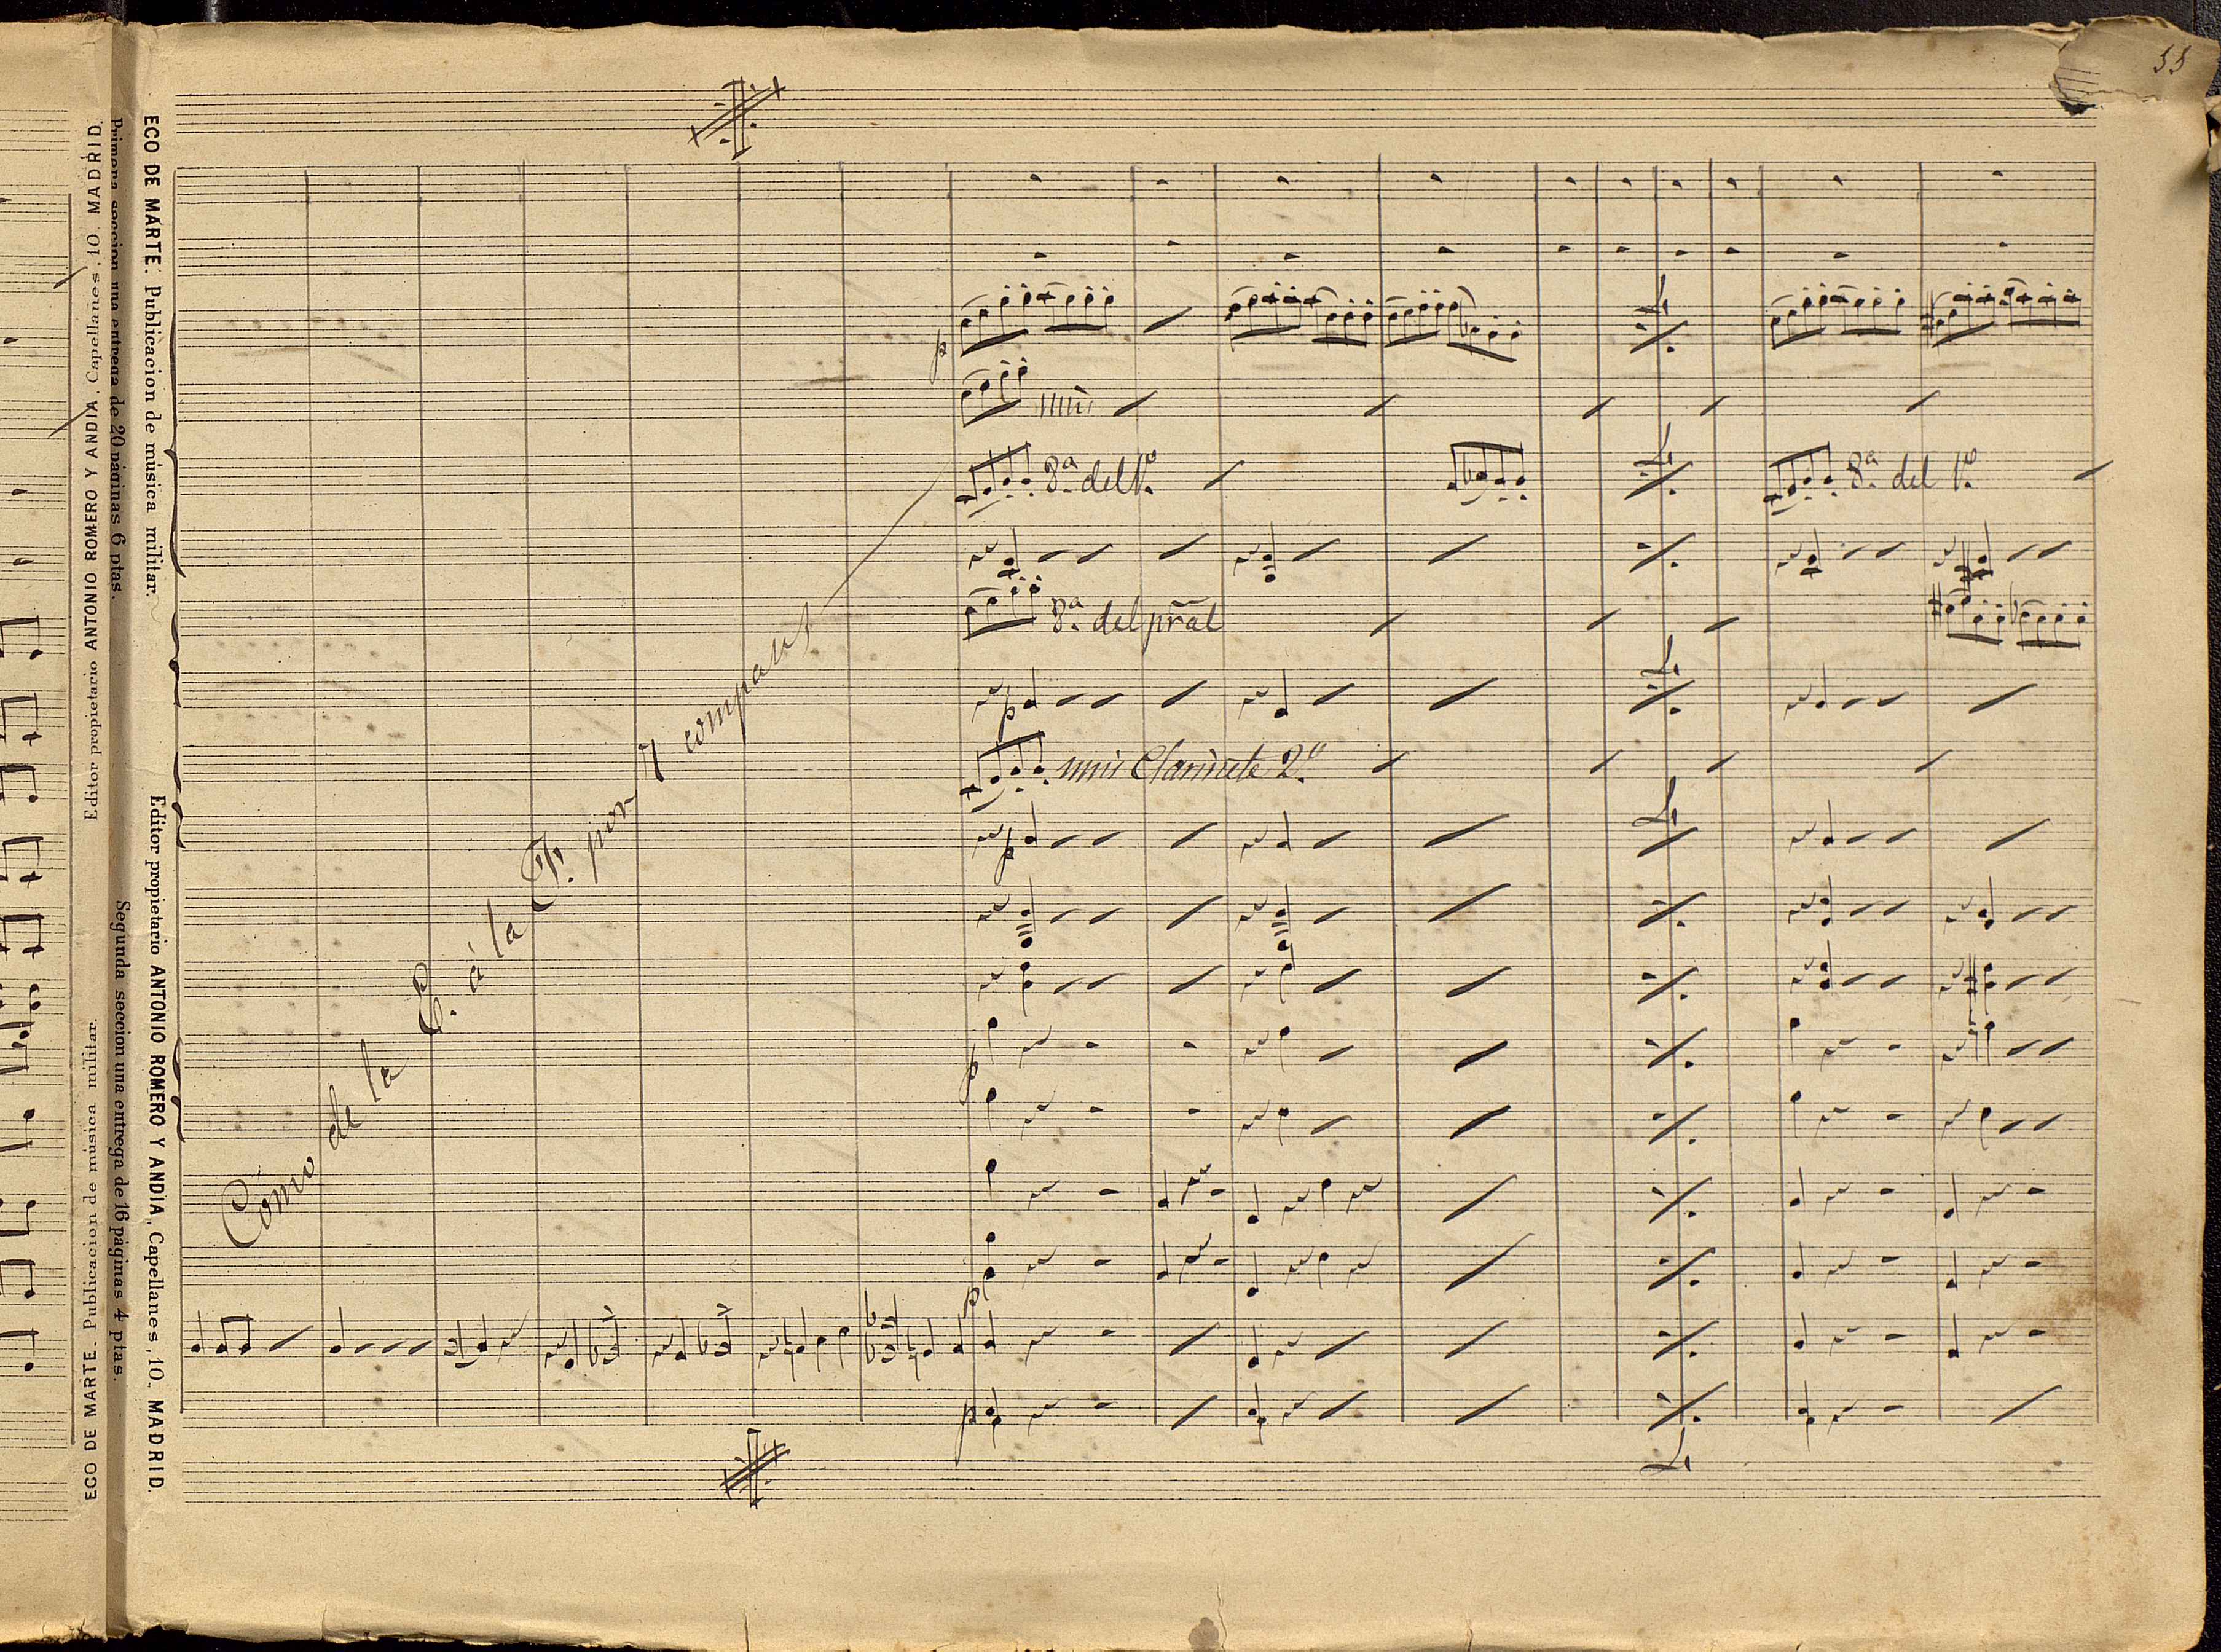 55
ECO DE MARTE. Publicacion de música militar. Editor propietario ANTONIO ROMERO Y ANDIA, Capellanes, 10. MADRID.
Primera seccion una entrega de 20 páginas 6 ptas. Segunda seccion una entrega de 16 páginas 4 ptas.
ECO DE MARTE. Publicacion de música militar. Editor propietario ANTONIO ROMERO Y ANDIA, Capellanes, 10. MADRID.
p
unis
8ª del 1º
8ª del 1º
8ª del pral
p
unis Clarinete 2º
p
Como de la E. á la F. por 7 compases
p
p
p